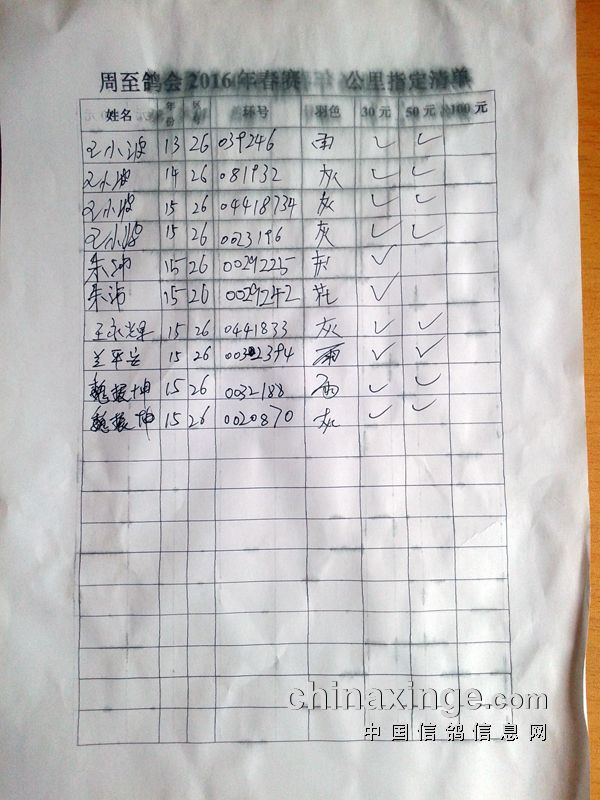 周至鸽会2016年春赛 公里指定清单
姓名 年份 区号 环号 羽色 30元 50元 100元
王小波 13 26 039246 雨 ✓ ✓
王小波 14 26 081932 灰 ✓ ✓
王小波 15 26 04418734 灰 ✓ ✓
王小波 15 26 0023196 灰 ✓ ✓
朱 15 26 0029225 ✓
朱 15 26 0029242 ✓
王永 15 26 0441833 灰 ✓ ✓
兰平 15 26 雨 ✓ ✓
魏振坤 15 26 0032188 雨 ✓ ✓
魏振坤 15 26 0020870 灰 ✓ ✓
chinaxinge.com
中国信鸽信息网